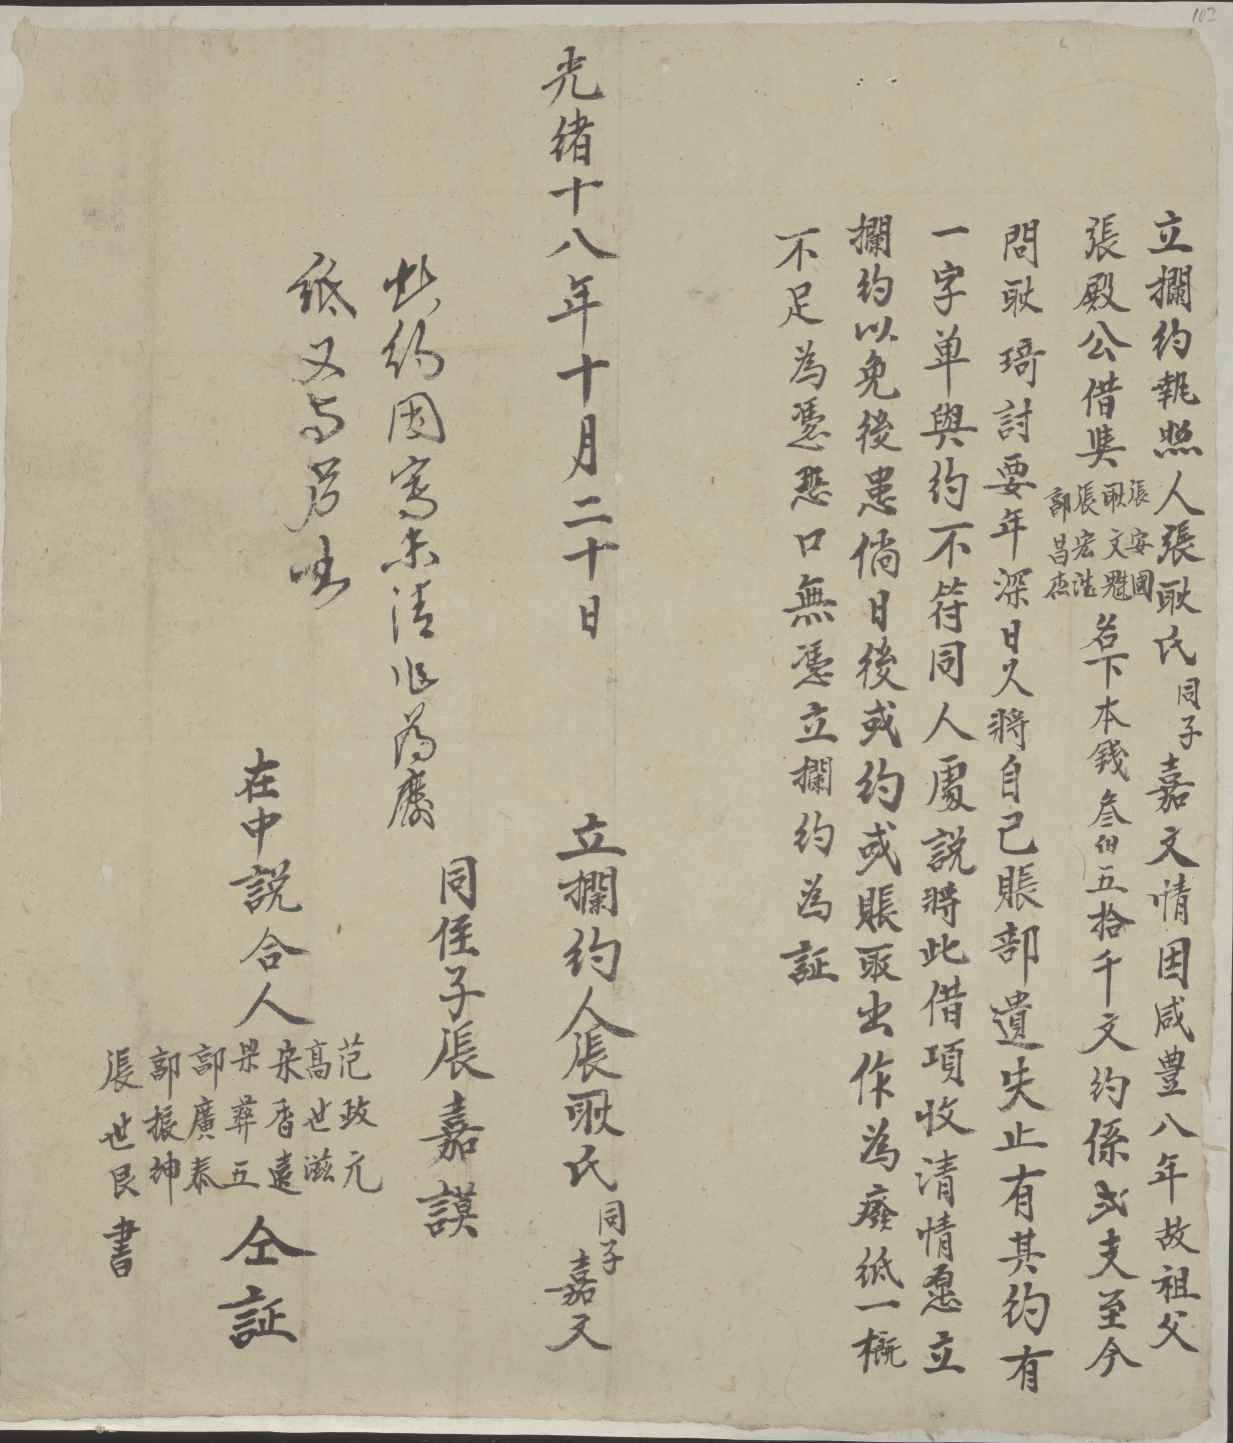 立攔約執照人張耿氏同子嘉文情因咸豐八年故祖父
張殿公借與張安國耿文魁張宏浩郭昌杰名下本錢叁佰五拾千文約係弍支至今
問耿琦討要年深日久將自己賬部遺失止有其約有
一字单與約不符同人處説將此借項收清情愿立
攔約以免後患倘日後或約或賬取出作為癈紙一概
不足為慿恐口無慿立攔約為証
光緒十八年十月二十日
立攔約人張耿氏同子嘉文
同侄子張嘉謨
此約因寫未清作為廢
紙又与
在中説合人
范政元
高世滋
宋香遠
梁葬五
郭廣泰
郭振紳
張世良書
仝証
103